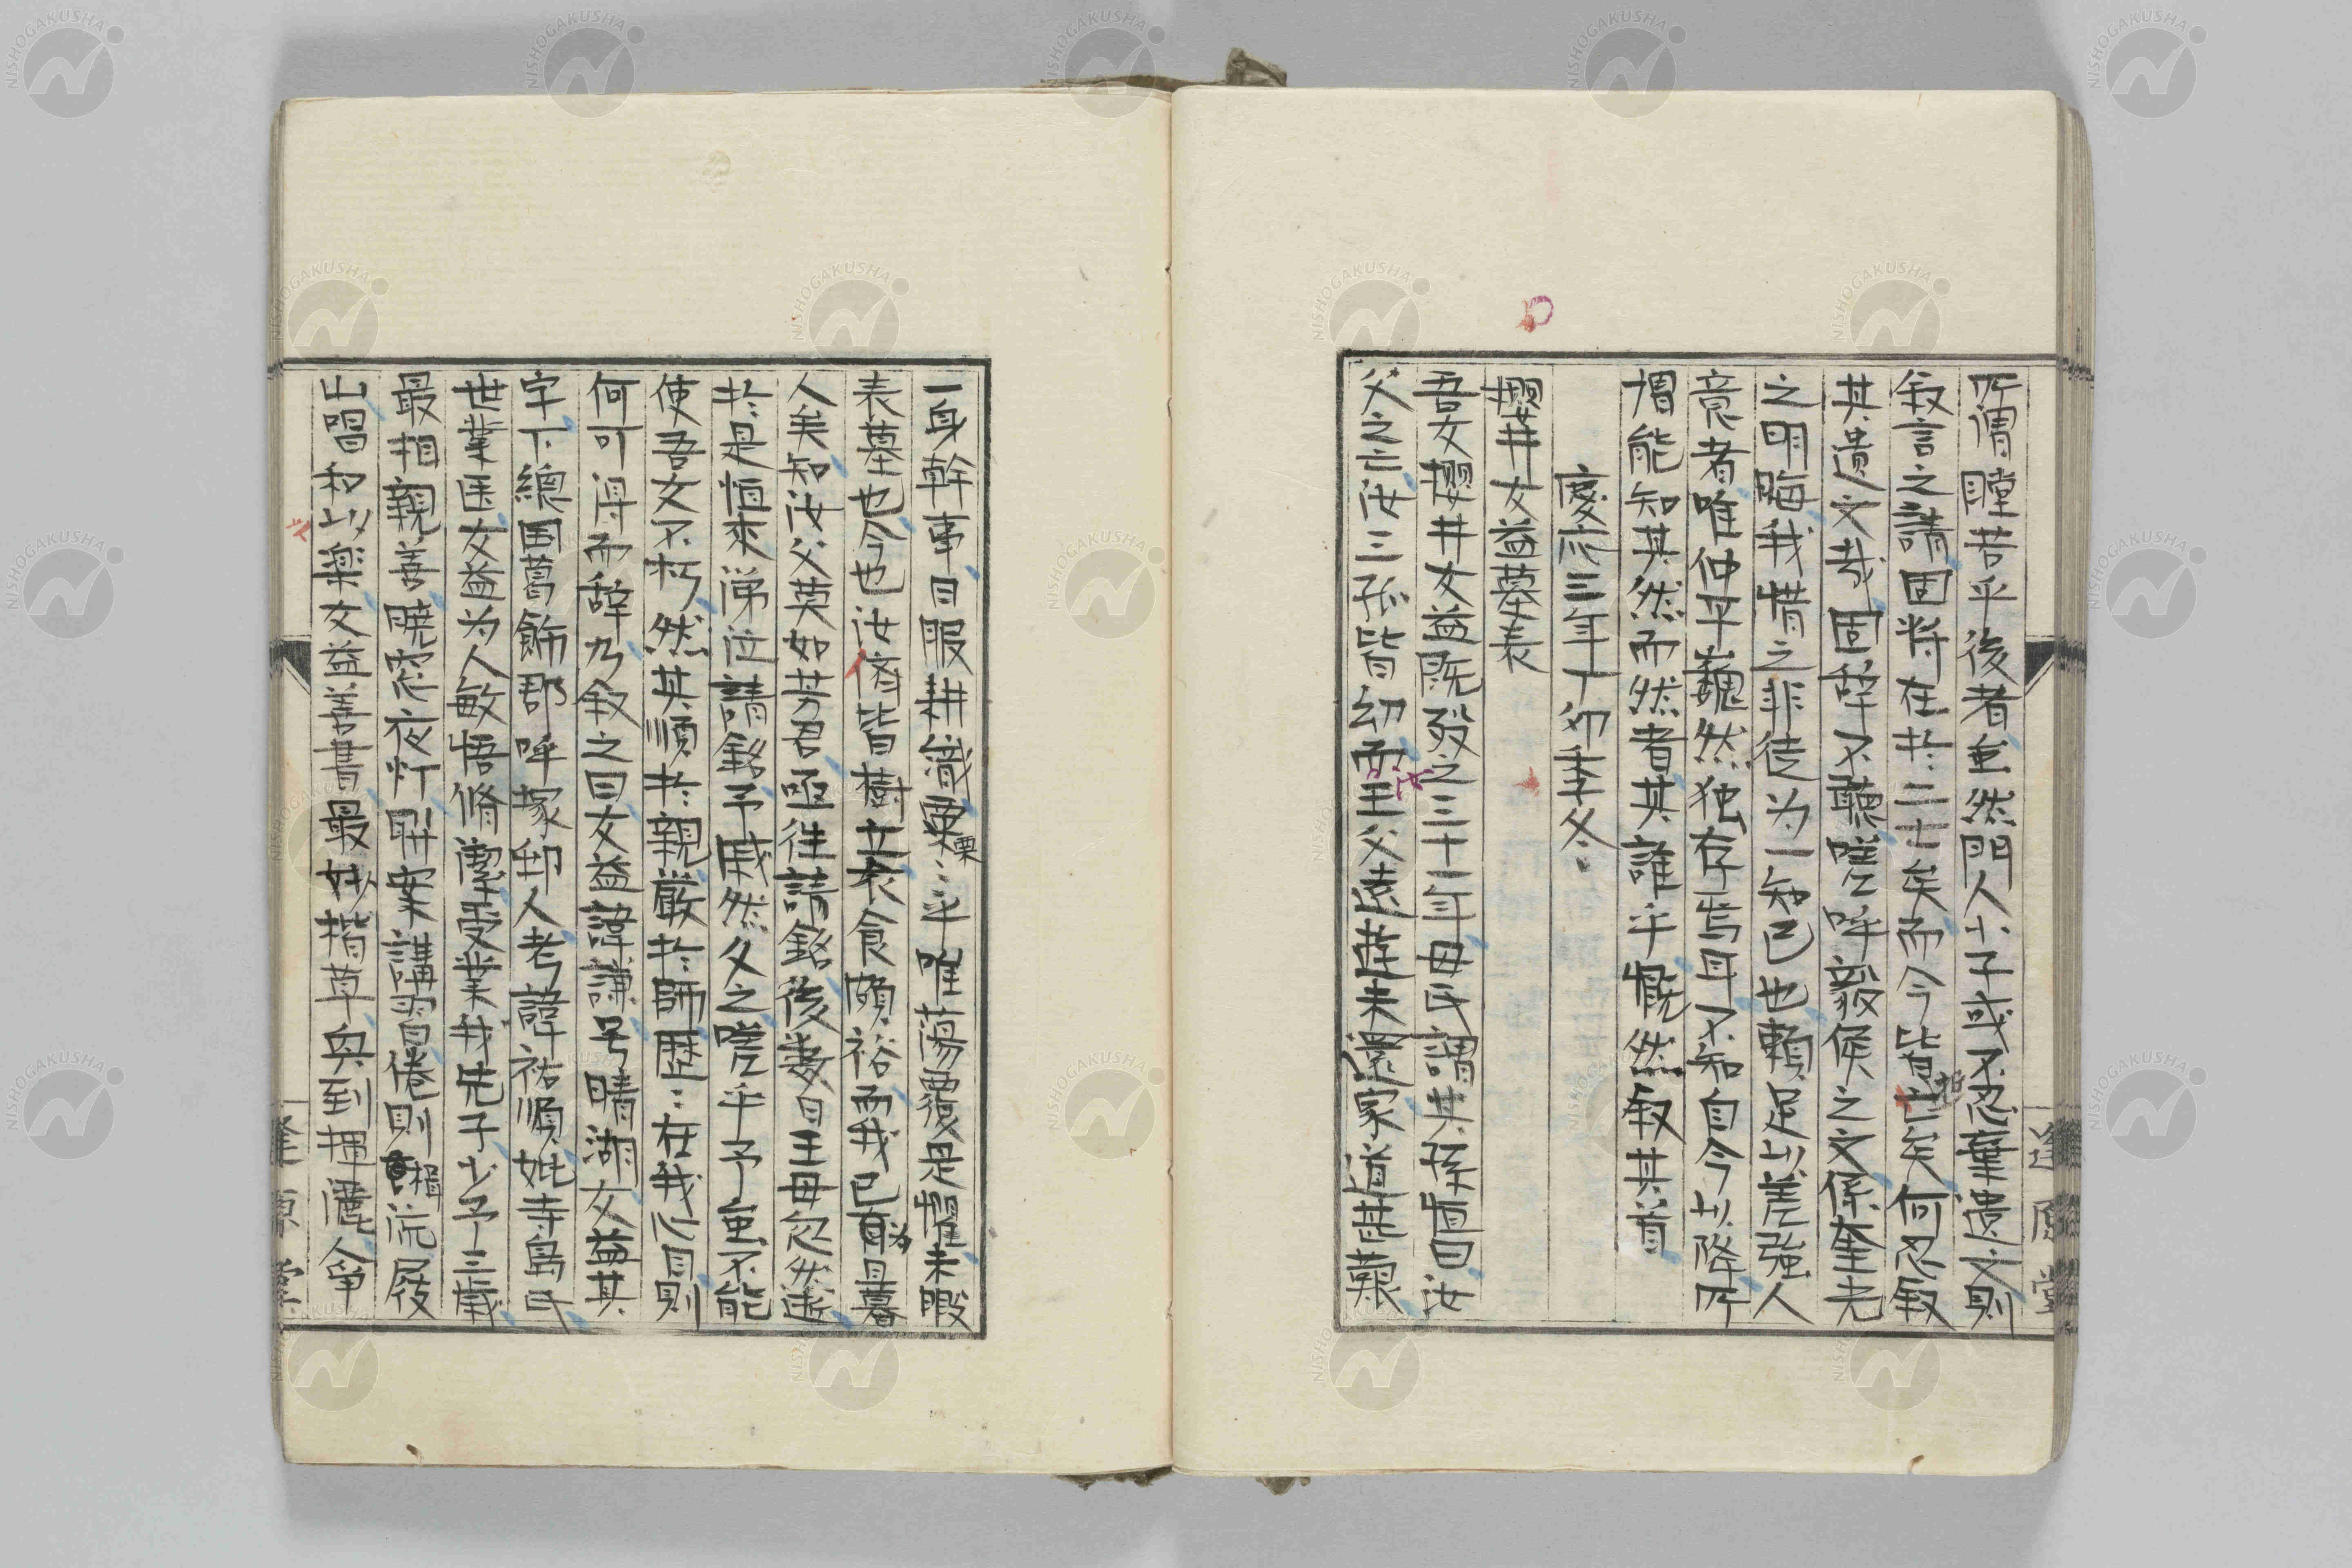 所謂瞠若乎後者𨿽然門人小子或不忍棄遺文則
叙言之請固将在於二士矣而今皆亡矣何忍叙
其遺文哉固辞不聴嗟呼毅侯之文係奎光
之明晦我惜之非徒为一知己也頼足以差強人
意者唯仲平巍然独存焉耳不知自今以降所
謂能知其然而然者其誰乎慨然叙其首
慶応三年丁卯季冬
櫻井文益墓表
吾友櫻井文益既殁之三十二年母氏謂其孫直曰汝
父之亡汝三孫皆幼而王父遠遊未還家道甚艱
一身幹事日服耕織栗〻乎唯蕩覆是懼未暇
表墓也今也汝儕皆樹立衣食頗裕而我已為旦暮
人矣知汝父莫如芳君亟往請銘後数日王母忽然逝
於是恒来涕泣請銘予戚然久之嗟乎予虽不能
使吾友不朽然其順於親厳於師歴〻在我心目則
何可得而辞乃叙之曰文益諱謙号晴湖文益其
字下總国葛飾郡呼塚邨人考諱祐順妣寺島氏
世業医文益为人敏悟脩潔受業我先子少予三歳
最相親善暁窓夜灯聯案講習倦則相沅屐
山唱和以楽文益善書最妙楷草興到揮灑人争
逢原堂